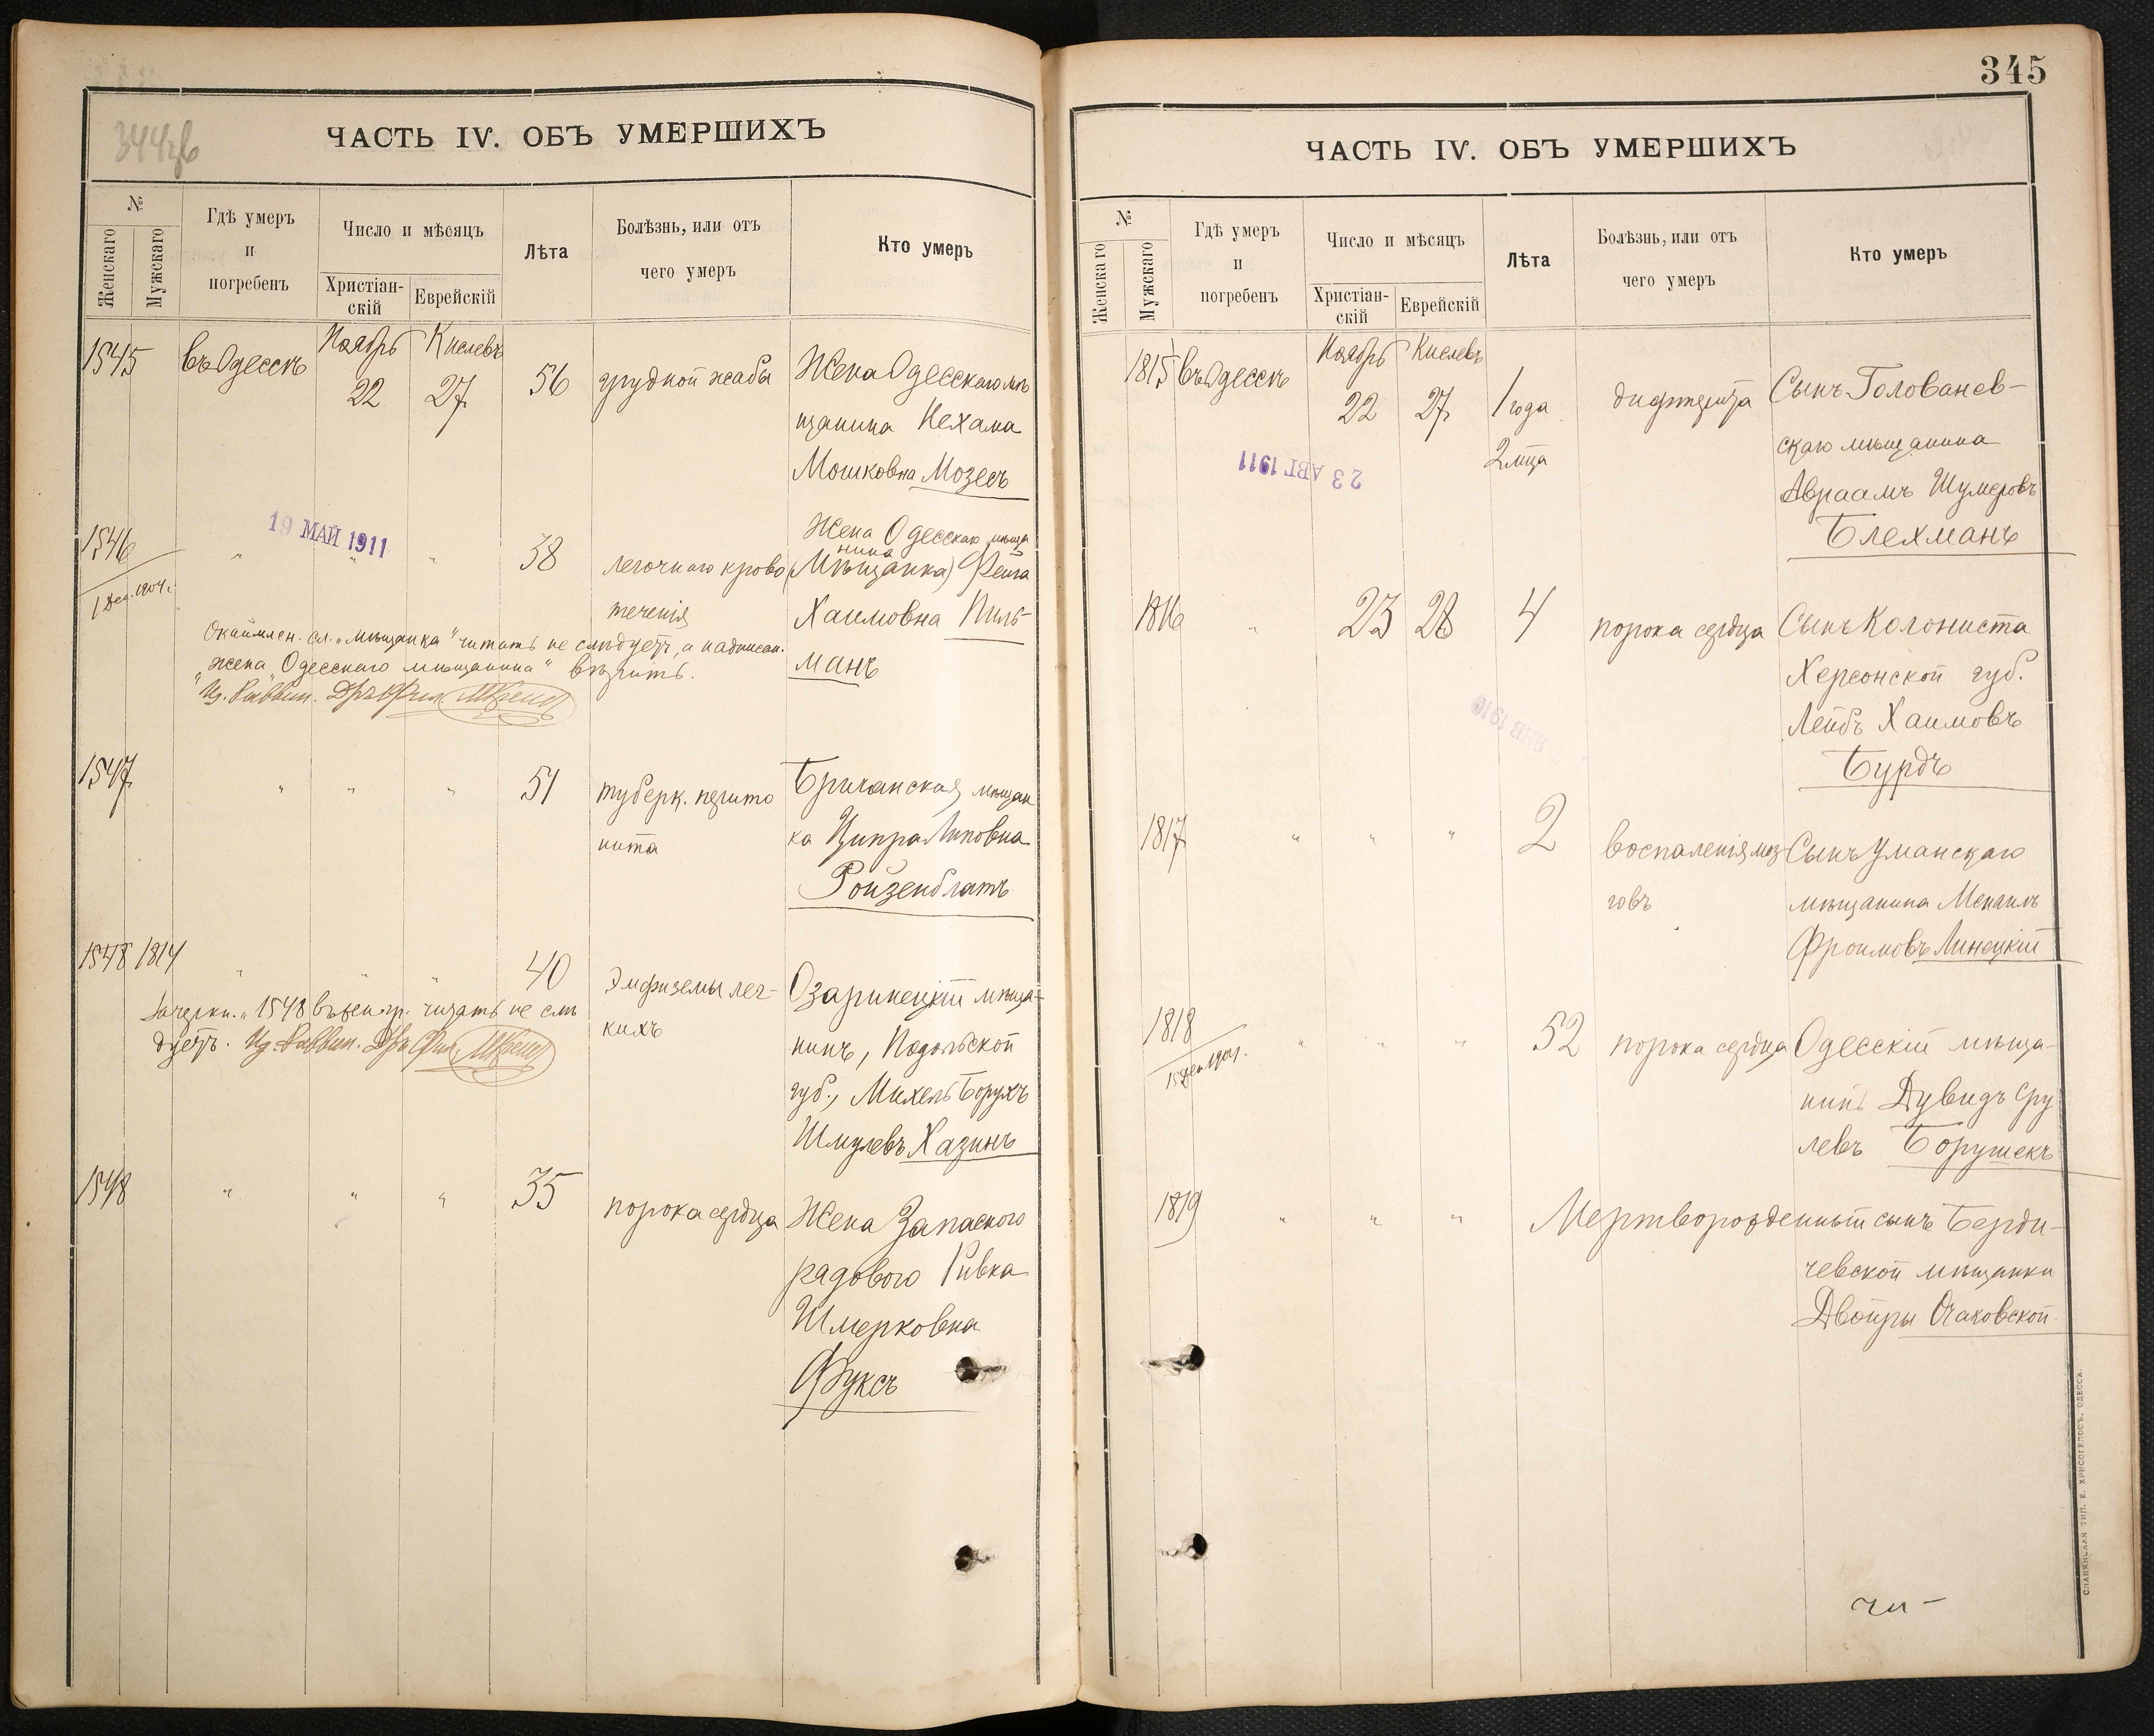 344цв
ЧАСТЬ IV. ОБЪ УМЕРШИХЪ
№
Женскаго
Мужскаго
Гдѣ умеръ
и
погребенъ
Число и мѣсяцъ
Христіан-
скій
Еврейскій
Лѣта
Болѣзнь, или отъ
чего умеръ
Кто умеръ
1545 въ Одессѣ Ноябрь Кислевъ
22 27 56 грудной жабы Жена Одесскаго мѣ
щанина Нехама
Мошковна Мозесъ
19 МАЙ 1911
1546 " " " 38 легочнаго крово Жена Одесскаго мѣща
нина
(Мѣщанка) Фейга
1 Дек. 1904 г.
теченія Хаимовна Пиль-
манъ
Окаймлен. сл. "мѣщанка" читать не слѣдуетъ, а надписан.
"жена Одесскаго мѣщанина" вѣрить.
Одес. Раввин.
1547 " " " 51 туберк. перито Бричанская мѣщан
нита ка Ципра Липовна
Ройзенблатъ
1548 1814 " " " 40 Эмфиземы лег- Озаринецкій мѣща-
кихъ нинъ, Подольской
губ., Михель Борухъ
Шмулевъ Хазинъ
Зачеркн. "1548 въ жен. гр. читать не слѣ
дуетъ. Раввин.
1548 " " " 35 порока сердца Жена Запаснаго
рядового Ривка
Шмерковна
Фуксъ
345
ЧАСТЬ IV. ОБЪ УМЕРШИХЪ
№
Женскаго
Мужскаго
Гдѣ умеръ
и
погребенъ
Число и мѣсяцъ
Христіан-
скій
Еврейскій
Лѣта
Болѣзнь, или отъ
чего умеръ
Кто умеръ
1815 въ Одессѣ Ноябрь Кислевъ
22 27 1 года дифтерита Сынъ Голованев-
2 мца скаго мѣщанина
Авраамъ Шумеровъ
Блехманъ
23 АВГ 1911
1816 " 23 28 4 порока сердца Сынъ Колониста
Херсонской губ.
Лейбъ Хаимовъ
Бурдъ
ЯНВ 1910
1817 " " " 2 воспаленія моз Сынъ Уманскаго
говъ мѣщанина Менаилъ
Фроимовъ Линецкій
1818 " " " 52 порока сердца Одесскій мѣща-
15 Дек. 1904 г.
нинъ Дувидъ Сру
левъ Борушекъ
1819 " " " Мертворожденный сынъ Берди-
чевской мѣщанки
Двойры Очаковской
СЛАВЯНСКАЯ ТИП. Е. ХРИСОГЕЛОСЪ, ОДЕССА.